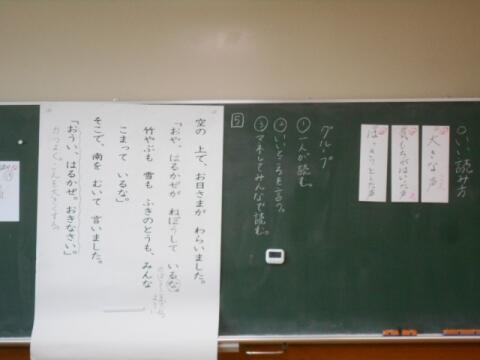 ○いい読み方
大きな声
気もちがはいった声
はっきりとした声
グループ
①一人が読む。
②いいところを言う。
③マネしてみんなで読む。
5
空の 上で、お日さまが わらいました。
「おや、はるかぜが ねぼうして いるな。
竹やぶも 雪も ふきのとうも、みんな
こまって いるな。」
そこで、南を むいて 言いました。
「おうい、はるかぜ。おきなさい。」